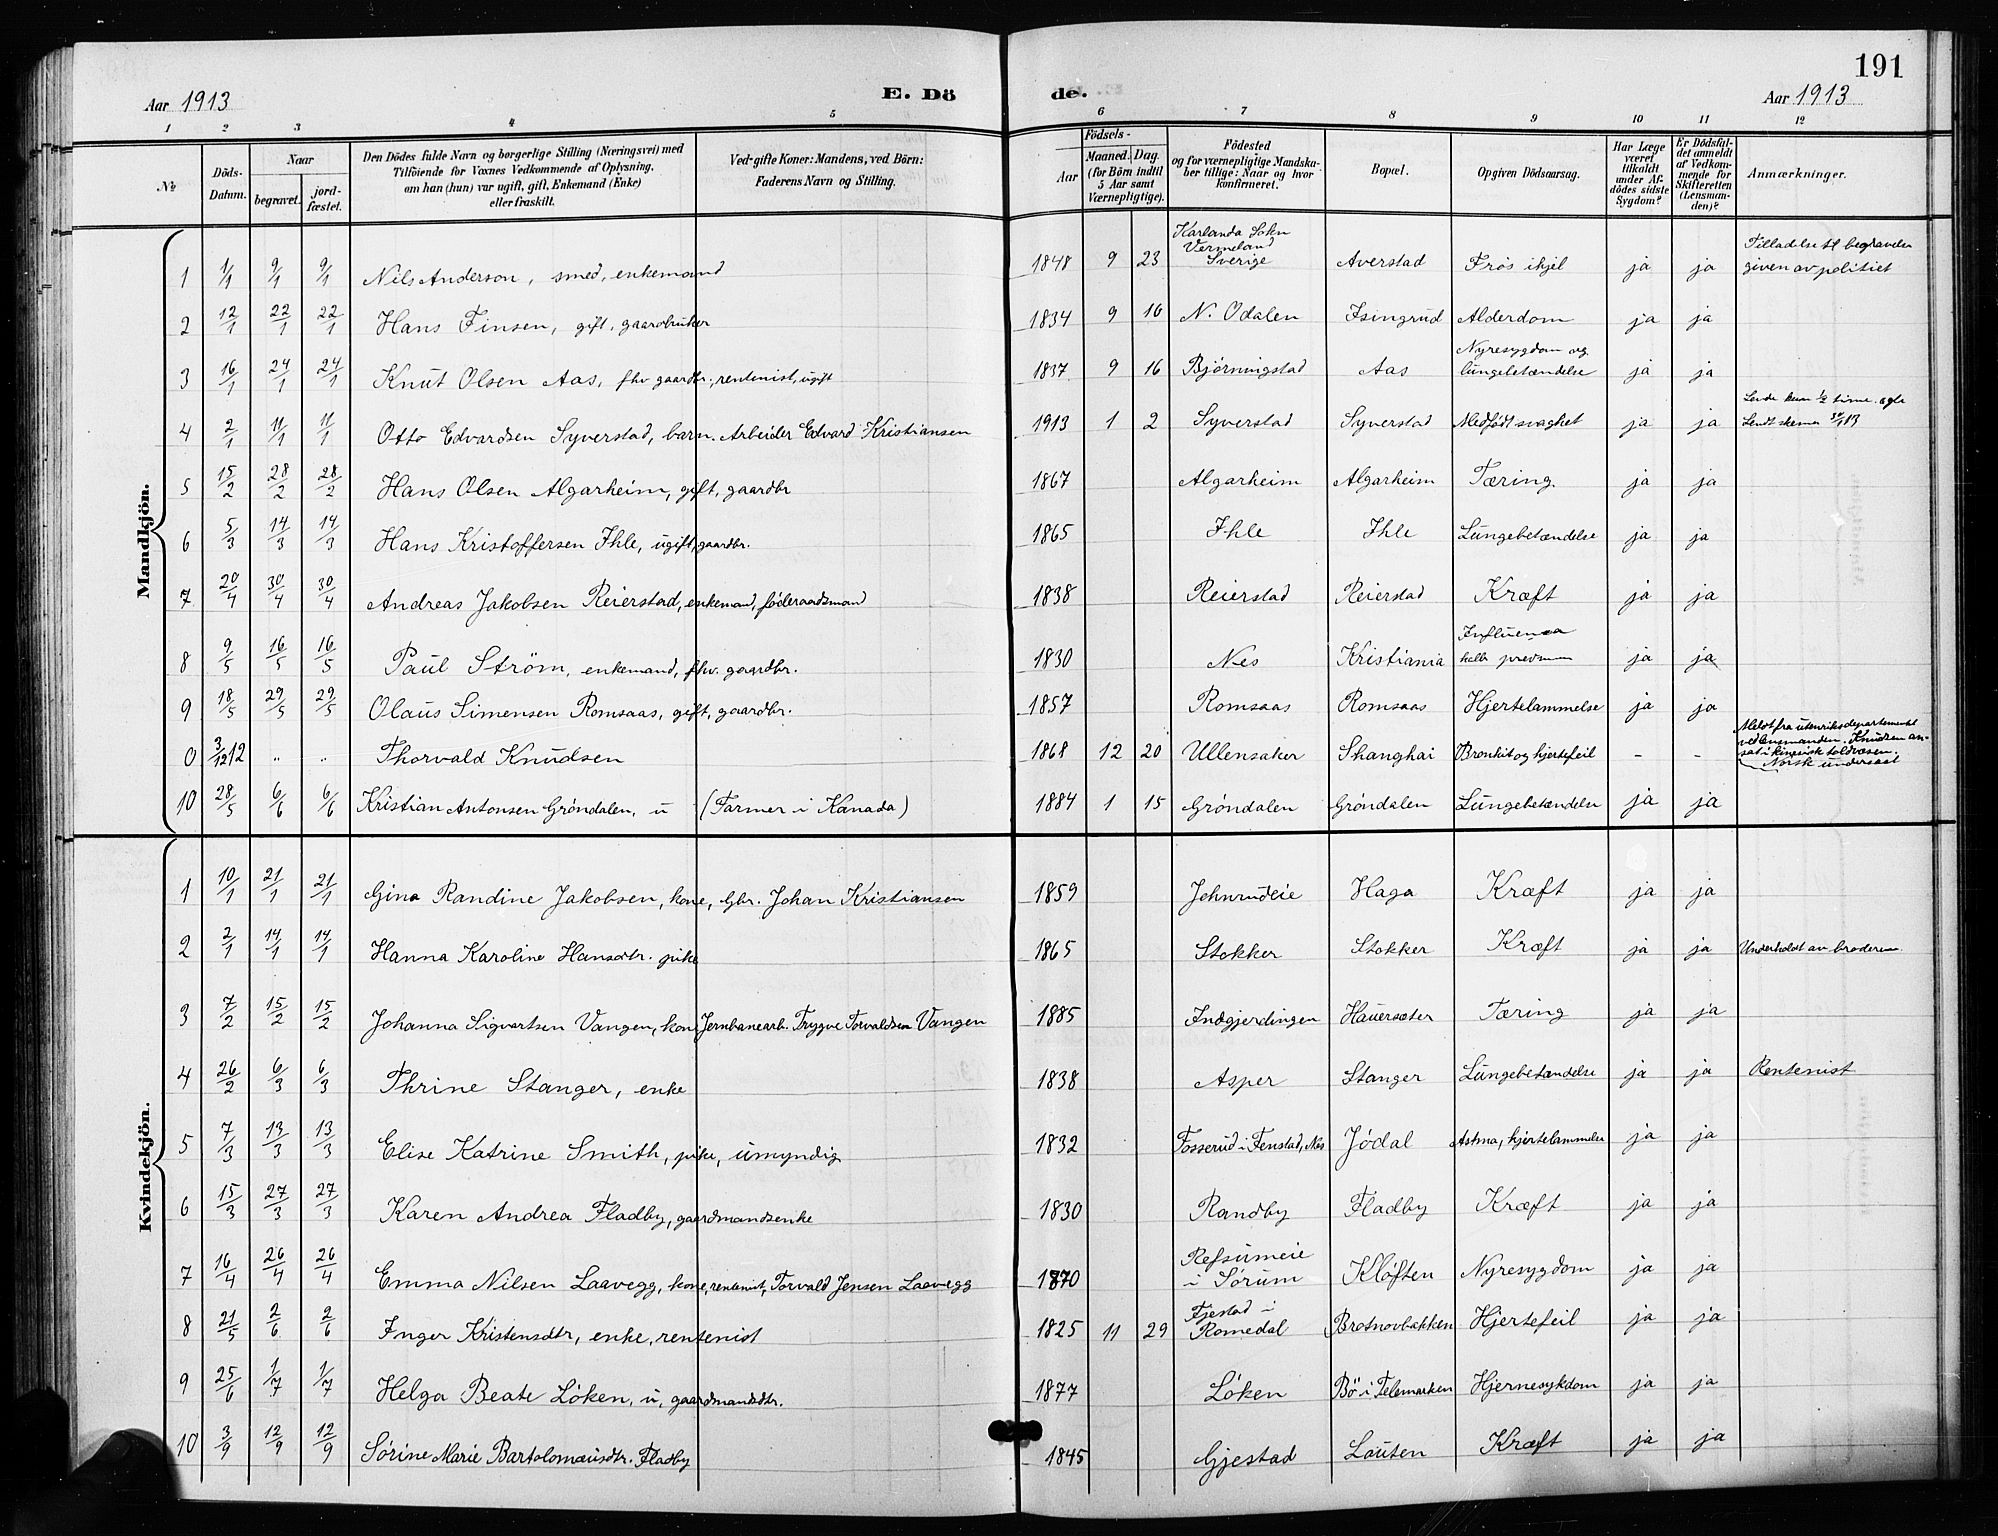 191
Aar 1913 E. Dö de. Aar 1913
1 2 3 4 5 6 7 8 9 10 11 12
№ Döds-Datum. Naar begravet. jordfæstet. Den Dödes fulde Navn og borgerlige Stilling (Næringsvei) med Tilföiende for Voxnes Vedkommende af Oplysning, om han (hun) var ugift, gift, Enkemand (Enke) eller fraskilt. Ved gifte Koner: Mandens, ved Börn: Faderens Navn og Stilling. Födsels- Aar Maaned. Dag. (for Börn indtil 5 Aar samt Værnepligtige). Födested og for værnepligtige Mandskaber tillige: Naar og hvor konfirmeret. Bopæl. Opgiven Dödsaarsag. Har Læge været tilkaldt under Afdödes sidste Sygdom? Er Dödsfaldet anmeldt af Vedkommende for Skifteretten (Lensmanden)? Anmærkninger.
Mandkjön.
1 1/1 9/1 9/1 Nils Anderson, smed, enkemand 1848 9 23 Karlanda Sokn Vermeland Sverige Averstad Frös ihjel ja ja Tilladelse til begravelse given av politiet
2 12/1 22/1 22/1 Hans Finsen, gift, gaardbruker 1834 9 16 N. Odalen Isingrud Alderdom ja ja
3 16/1 24/1 24/1 Knut Olsen Aas, fhv gaardbr., rentenist, ugift 1837 9 16 Bjørningstad Aas Nyresygdom og lungebetændelse ja ja
4 2/1 11/1 11/1 Otto Edvardsen Syverstad, barn. Arbeider Edvard Kristiansen 1913 1 2 Syverstad Syverstad Medfødt svaghet ja ja Levde kun 1/2 time. Sendt skema
5 15/2 28/2 28/2 Hans Olsen Algarheim, gift, gaardbr 1867 Algarheim Algarheim Tæring. ja ja
6 5/3 14/3 14/3 Hans Kristoffersen Ihle, ugift, gaardbr. 1865 Ihle Ihle Lungebetændelse ja ja
7 20/4 30/4 30/4 Andreas Jakobsen Reierstad, enkemand, föderaadsmand 1838 Reierstad Reierstad Kræft ja ja
8 9/5 16/5 16/5 Paul Ström, enkemand, fhv. gaardbr. 1830 Nes Kristiania Influensa ja ja
9 18/5 29/5 29/5 Olaus Simensen Romsaas, gift, gaardbr. 1857 Romsaas Romsaas Hjertelammelse ja ja
0 3/12 12 " " Thorvald Knudsen 1868 12 20 Ullensaker Shanghai Bronkit og hjertefeil - - Meldt fra utenriksdepartementet ved lensmanden. Knudsen ansat i kinesisk toldvæsen. Norsk undersaat
10 28/5 6/6 6/6 Kristian Antonsen Gröndalen, u (Farmer i Kanada) 1884 1 15 Gröndalen Gröndalen Lungebetændelse ja ja
Kvindekjön.
1 10/1 21/1 21/1 Gina Randine Jakobsen, kone, Gbr. Johan Kristiansen 1859 Johnrudeie Haga Kræft ja ja
2 2/1 14/1 14/1 Hanna Karoline Hansdtr. pike 1865 Stokker Stokker Kræft ja ja Underholdt av broderen
3 7/2 15/2 15/2 Johanna Sigvartsen Vangen, kone Jernbanearb. Trygve Torvaldsen Vangen 1885 Indgjerdingen Hauersæter Tæring ja ja
4 26/2 6/3 6/3 Thrine Stanger, enke 1838 Asper Stanger Lungebetændelse ja ja Rentenist
5 7/3 13/3 13/3 Elise Katrine Smith, pike, umyndig 1832 Fosserud i Fenstad, Nes Jödal Astma, hjertelammelse ja ja
6 15/3 27/3 27/3 Karen Andrea Fladby, gaardmandsenke 1830 Randby Fladby Kræft ja ja
7 16/4 26/4 26/4 Emma Nilsen Laavegg, kone, rentenist, Torvald Jensen Laavegg 1870 Refsumeie i Sørum Klöften Nyresygdom ja ja
8 21/5 2/6 2/6 Inger Kristensdtr, enke, rentenist 1825 11 29 Fjestad i Romedal Brotnovbakken Hjertefeil ja ja
9 25/6 1/7 1/7 Helga Beate Löken, u, gaardmandsdtr. 1877 Löken Bö i Telemarken Hjernesykdom ja ja
10 3/9 12/9 12/9 Sörine Marie Bartolomæusdtr. Fladby 1845 Gjestad Lauten Kræft ja ja